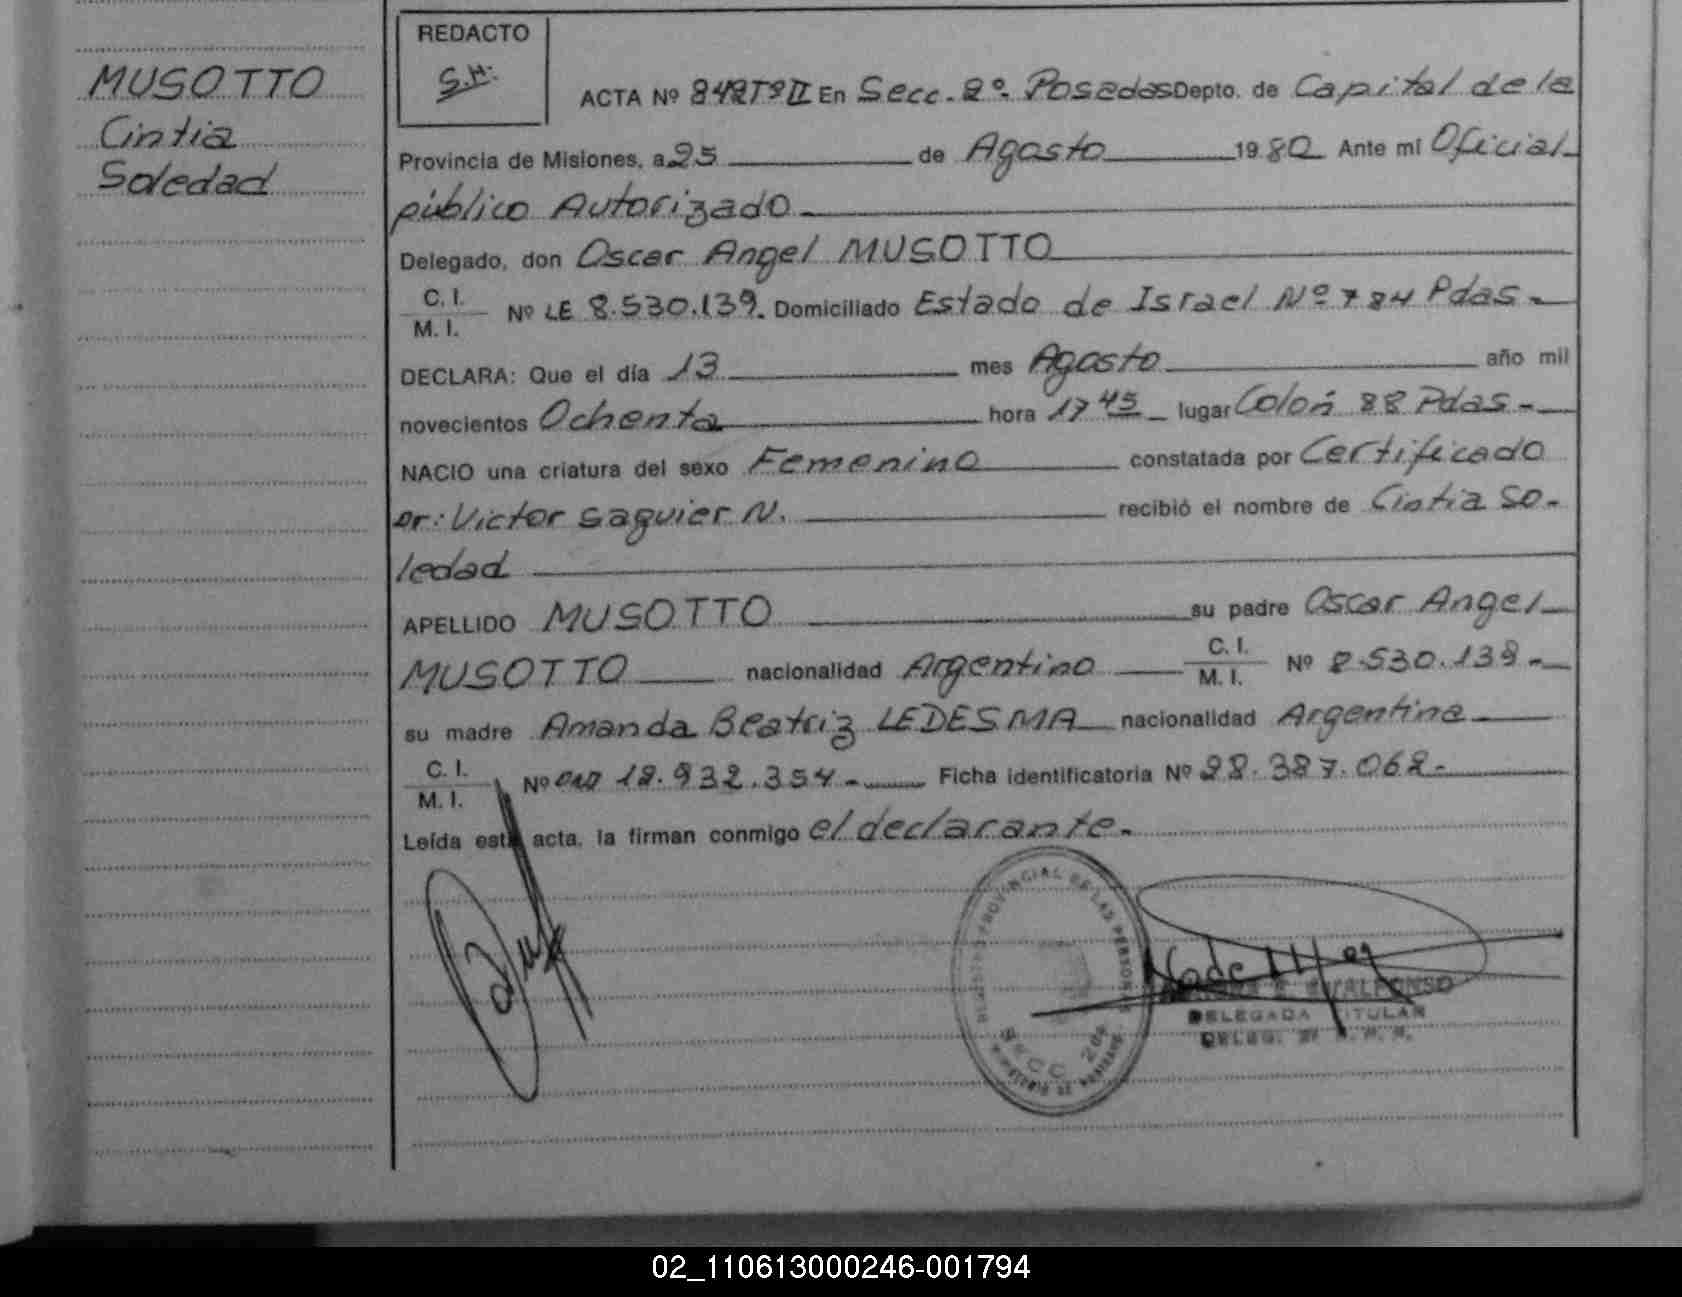 MUSOTTO
Cintia
Soledad
REDACTO
S.H.
ACTA Nº 842TºII En Secc. 2º. Posadas Depto. de Capital de la
Provincia de Misiones, a 25 de Agosto 1980 Ante mí Oficial
público Autorizado
Delegado, don Oscar Angel MUSOTTO
C. I.
M. I.
Nº LE 8.530.139. Domiciliado Estado de Israel Nº 784 Pdas.
DECLARA: Que el día 13 mes Agosto año mil
novecientos Ochenta hora 17 45 lugar Colón 88 Pdas.
NACIO una criatura del sexo Femenino constatada por Certificado
Dr: Victor Saguier N. recibió el nombre de Cintia So-
ledad
APELLIDO MUSOTTO su padre Oscar Angel
MUSOTTO nacionalidad Argentino C. I.
M. I. Nº 8.530.139.
su madre Amanda Beatriz LEDESMA nacionalidad Argentina
C. I.
M. I.
Nº DNI 12.932.354. Ficha identificatoria Nº 28.387.062.
Leída esta acta, la firman conmigo el declarante.
REGISTRO PROVINCIAL DE LAS PERSONAS
SECC 2da
DELEGADA TITULAR
02_110613000246-001794